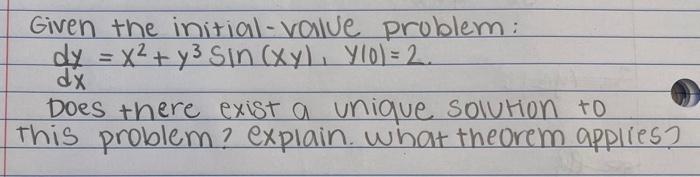 Given the initial-value problem:
dy/dx = x² + y³ Sin (xy), y(0) = 2.
Does there exist a unique solution to
this problem? explain. what theorem applies?